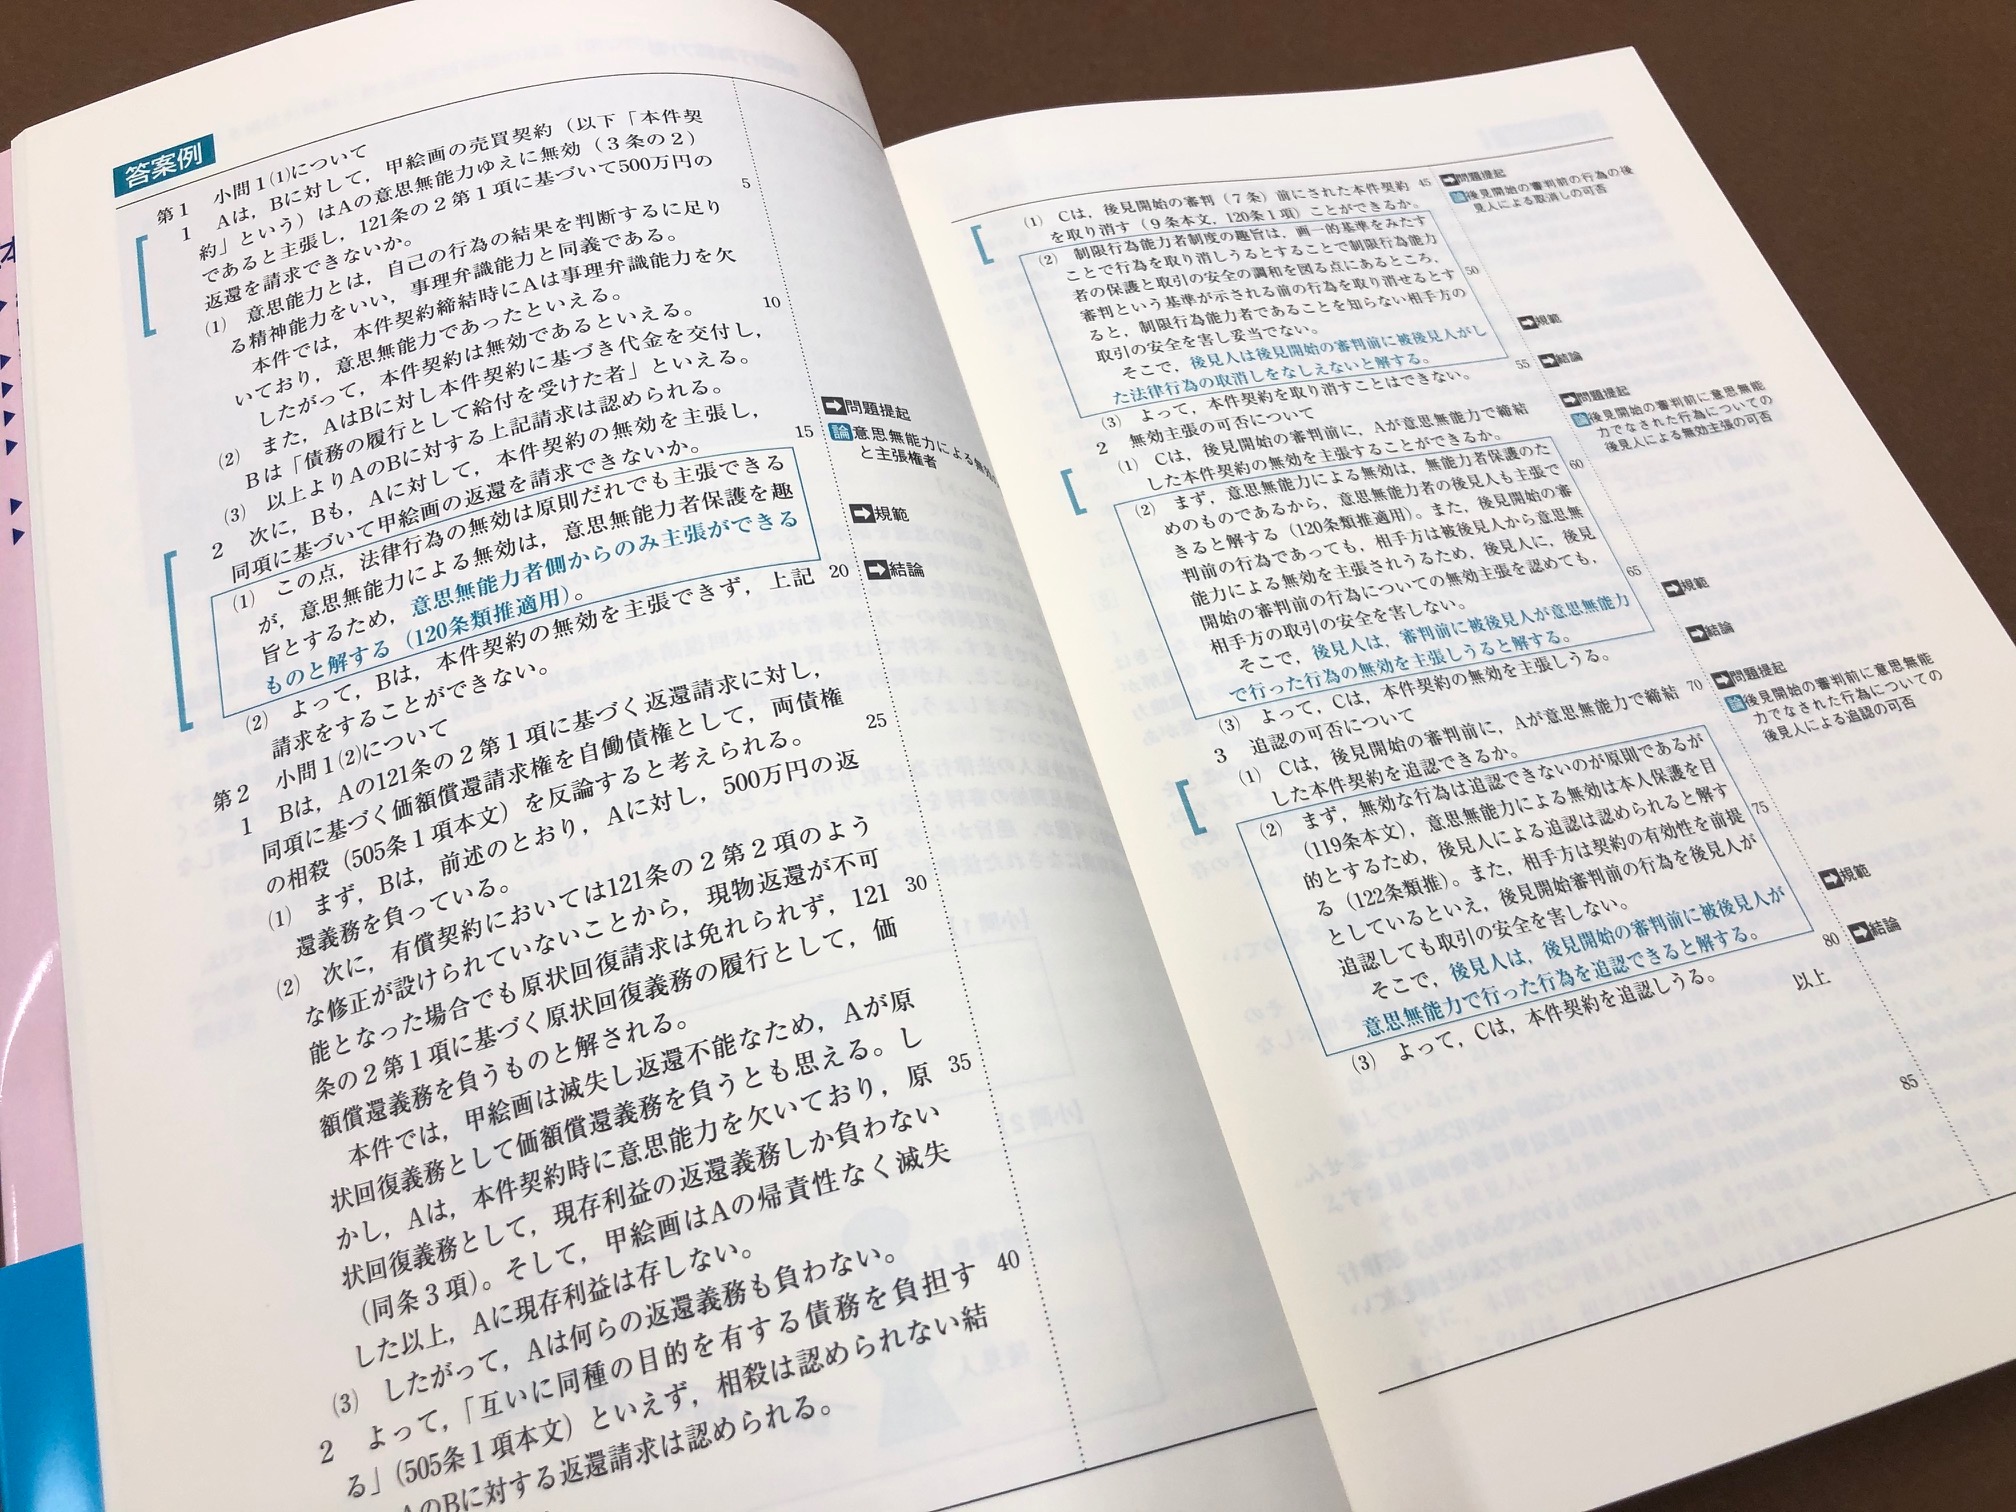 答案例
第1 小問1(1)について
1 Aは，Bに対して，甲絵画の売買契約（以下「本件契
約」という）はAの意思無能力ゆえに無効（3条の2）
であると主張し，121条の2第1項に基づいて500万円の
返還を請求できないか。 5
(1) 意思能力とは，自己の行為の結果を判断するに足り
る精神能力をいい，事理弁識能力と同義である。
本件では，本件契約締結時にAは事理弁識能力を欠
いており，意思無能力であったといえる。
したがって，本件契約は無効であるといえる。 10
(2) また，AはBに対し本件契約に基づき代金を交付し，
Bは「債務の履行として給付を受けた者」といえる。
(3) 以上よりAのBに対する上記請求は認められる。
2 次に，Bも，Aに対して，本件契約の無効を主張し，
同項に基づいて甲絵画の返還を請求できないか。 15
(1) この点，法律行為の無効は原則だれでも主張できる
が，意思無能力による無効は，意思無能力者保護を趣
旨とするため，意思無能力者側からのみ主張ができる
ものと解する（120条類推適用）。
(2) よって，Bは，本件契約の無効を主張できず，上記 20
請求をすることができない。
第2 小問1(2)について
1 Bは，Aの121条の2第1項に基づく返還請求に対し，
同項に基づく価額償還請求権を自働債権として，両債権
の相殺（505条1項本文）を反論すると考えられる。 25
(1) まず，Bは，前述のとおり，Aに対し，500万円の返
還義務を負っている。
(2) 次に，有償契約においては121条の2第2項のよう
な修正が設けられていないことから，現物返還が不可
能となった場合でも原状回復請求は免れられず，121 30
条の2第1項に基づく原状回復義務の履行として，価
額償還義務を負うものと解される。
本件では，甲絵画は滅失し返還不能なため，Aが原
状回復義務として価額償還義務を負うとも思える。し
かし，Aは，本件契約時に意思能力を欠いており，原 35
状回復義務として，現存利益の返還義務しか負わない
（同条3項）。そして，甲絵画はAの帰責性なく滅失
した以上，Aに現存利益は存しない。
したがって，Aは何らの返還義務も負わない。
(3) よって，「互いに同種の目的を有する債務を負担す 40
る」（505条1項本文）といえず，相殺は認められない結
2 AのBに対する返還請求は認められる。
問題提起
論 意思無能力による無効
と主張権者
規範
結論
(1) Cは，後見開始の審判（7条）前にされた本件契約 45
を取り消す（9条本文，120条1項）ことができるか。
(2) 制限行為能力者制度の趣旨は，画一的基準をみたす
ことで行為を取り消しうるとすることで制限行為能力
者の保護と取引の安全の調和を図る点にあるところ，
審判という基準が示される前の行為を取り消せるとす 50
ると，制限行為能力者であることを知らない相手方の
取引の安全を害し妥当でない。
そこで，後見人は後見開始の審判前に被後見人がし
た法律行為の取消しをなしえないと解する。
(3) よって，本件契約を取り消すことはできない。 55
2 無効主張の可否について
(1) Cは，後見開始の審判前に，Aが意思無能力で締結
した本件契約の無効を主張することができるか。
(2) まず，意思無能力による無効は，無能力者保護のた
めのものであるから，意思無能力者の後見人も主張で 60
きると解する（120条類推適用）。また，後見開始の審
判前の行為であっても，相手方は被後見人から意思無
能力による無効を主張されうるため，後見人に，後見
開始の審判前の行為についての無効主張を認めても，
相手方の取引の安全を害しない。 65
そこで，後見人は，審判前に被後見人が意思無能力
で行った行為の無効を主張しうると解する。
(3) よって，Cは，本件契約の無効を主張しうる。
3 追認の可否について
(1) Cは，後見開始の審判前に，Aが意思無能力で締結 70
した本件契約を追認できるか。
(2) まず，無効な行為は追認できないのが原則であるが
（119条本文），意思無能力による無効は本人保護を目
的とするため，後見人による追認は認められると解す
る（122条類推）。また，相手方は契約の有効性を前提 75
としているといえ，後見開始審判前の行為を後見人が
追認しても取引の安全を害しない。
そこで，後見人は，後見開始の審判前に被後見人が
意思無能力で行った行為を追認できると解する。
(3) よって，Cは，本件契約を追認しうる。 80
以上
85
問題提起
論 後見開始の審判前の行為の後
見人による取消しの可否
規範
結論
問題提起
論 後見開始の審判前に意思無能
力でなされた行為についての
後見人による無効主張の可否
規範
結論
問題提起
論 後見開始の審判前に意思無能
力でなされた行為についての
後見人による追認の可否
規範
結論